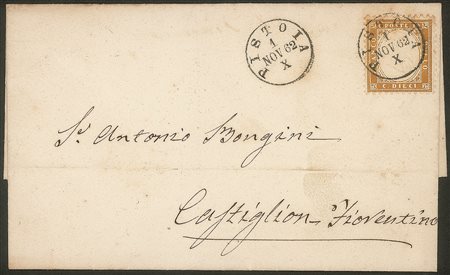 PISTOIA
1
NOV 62
X
PISTOIA
1
NOV 62
X
C. DIECI
S. Antonio Bongini
Castiglion Fiorentino